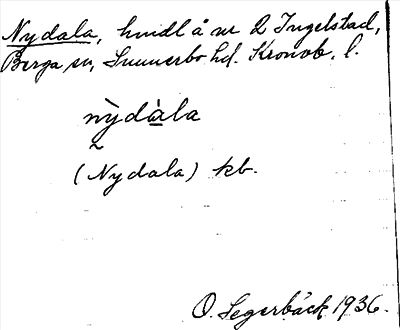 Nydala, hmdl å nr 2 Ingelstad,
Berga sn, Sunnerbo hd. Kronob. l.
nỳdàla
~
(Nydala) kb.
O. Segerbäck 1936.